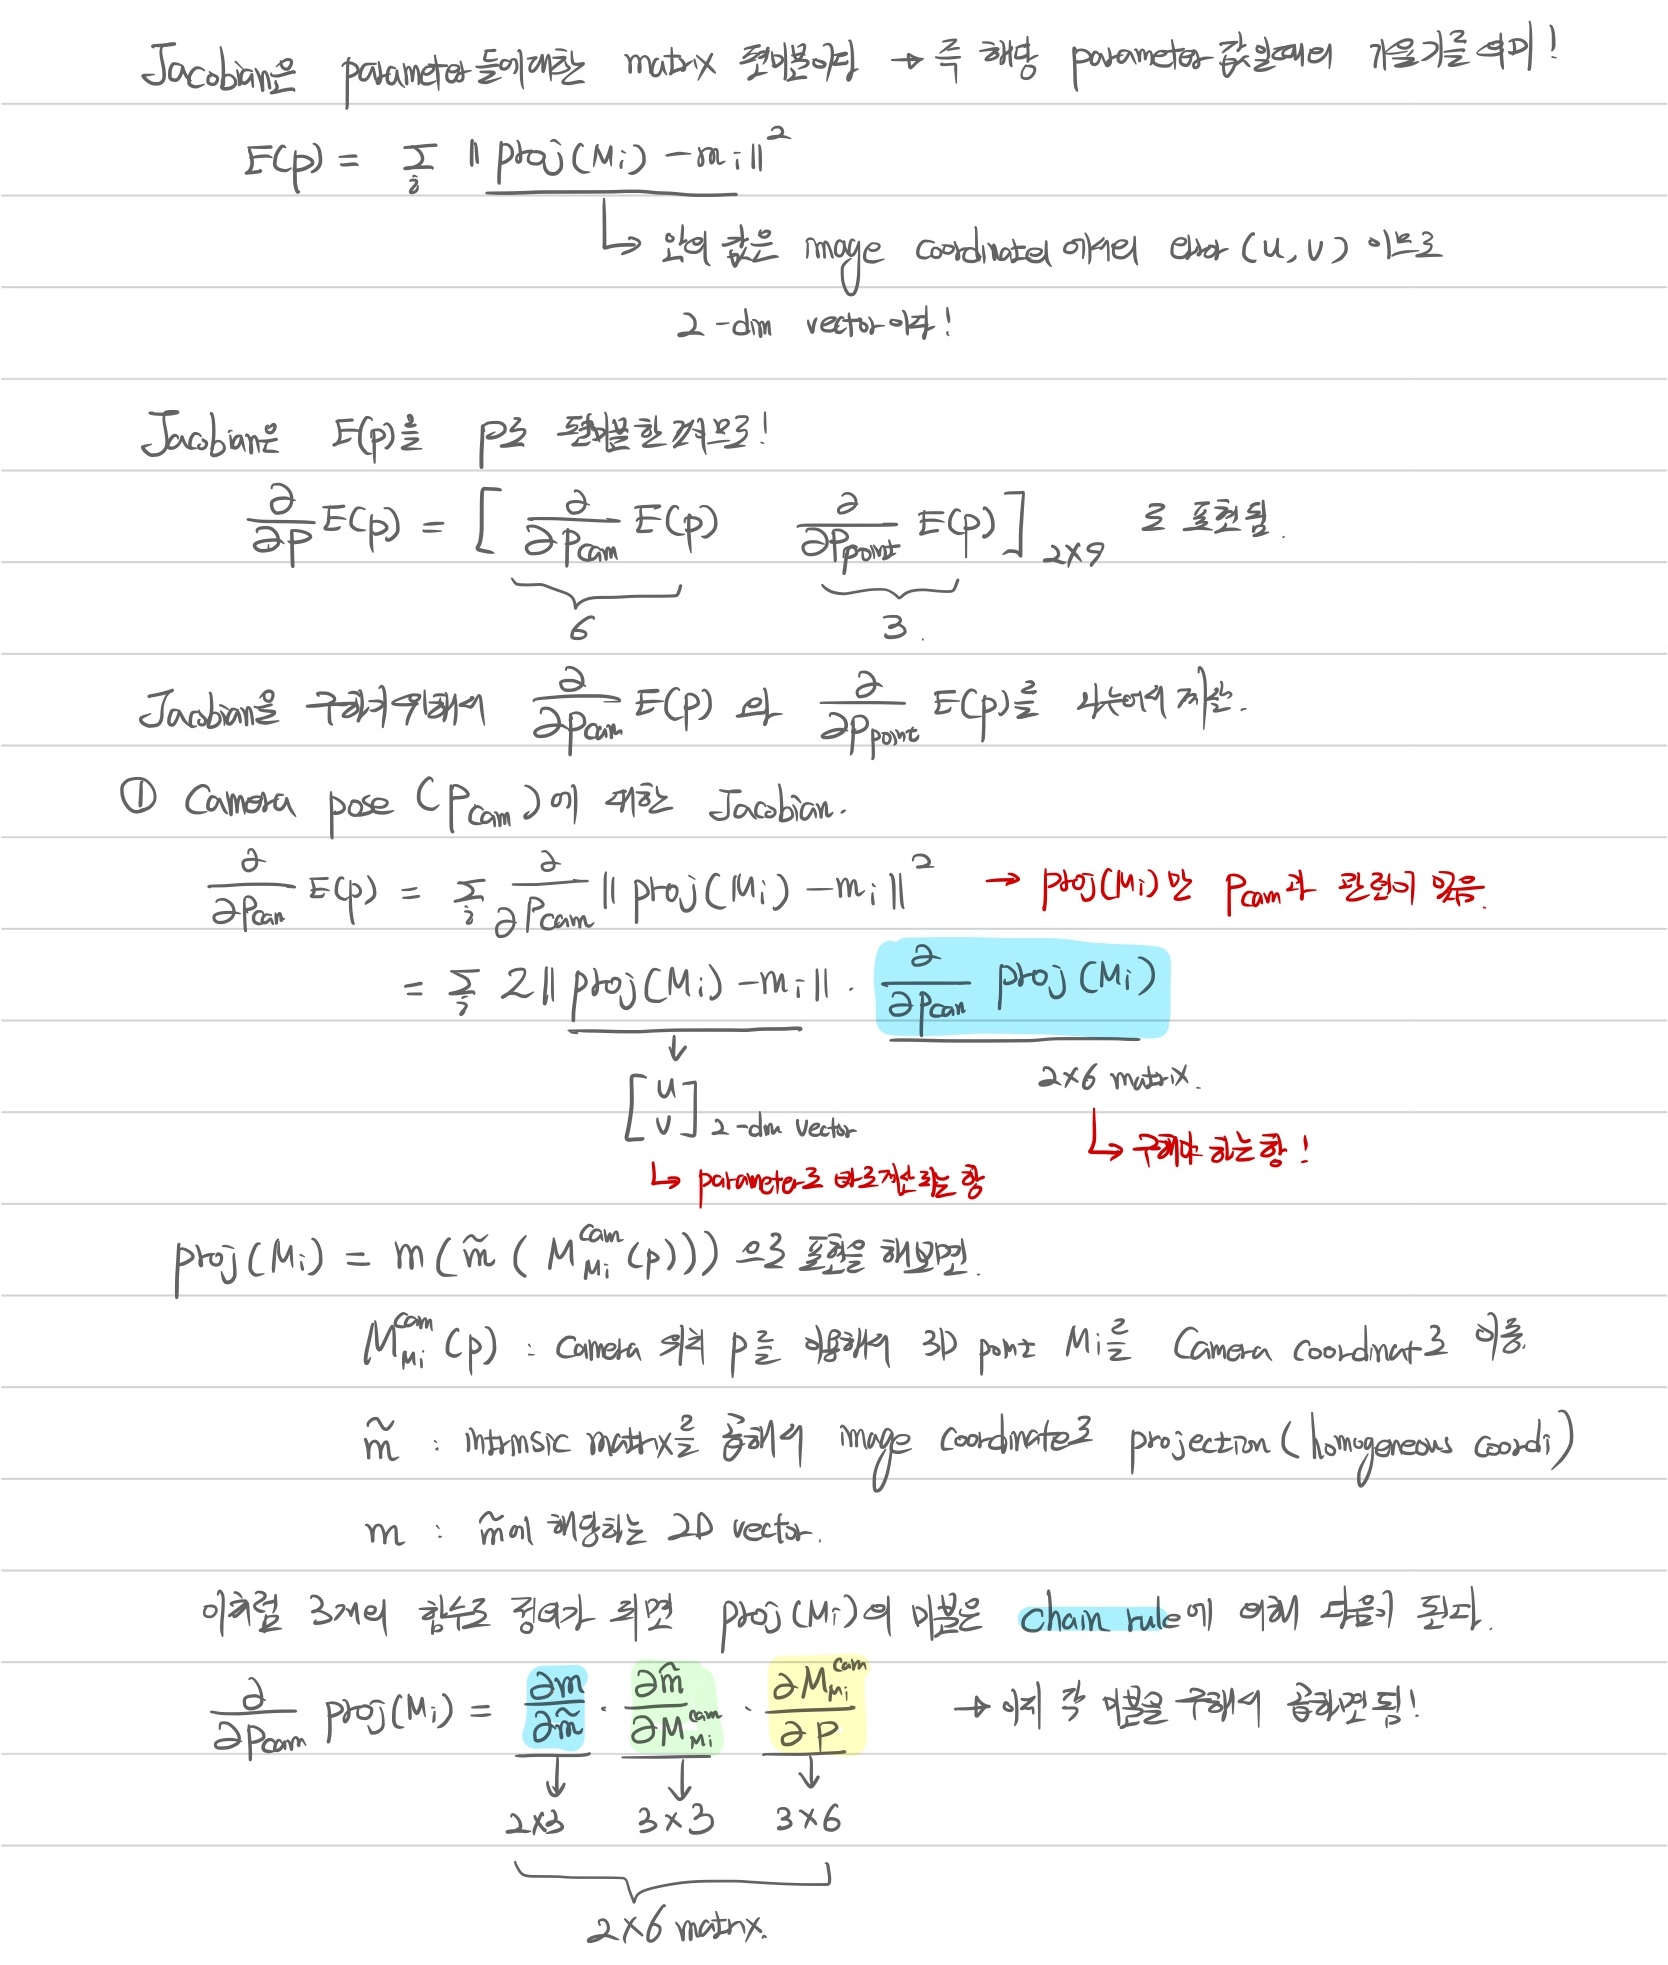 Jacobian은 parameter들에대한 matrix 편미분이다 → 즉 해당 parameter 값일때의 기울기를 의미!
E(p) = Σ_i ‖proj(M_i) − m_i‖²
↳ 안의 값은 image coordinate에서의 error (u, v) 이므로
2-dim vector이다!
Jacobian은 E(p)를 p로 편미분한 것이므로!
∂/∂p E(p) = [ ∂/∂p_cam E(p) ∂/∂p_point E(p) ]_2×9 로 표현됨.
6 3.
Jacobian을 구하기위해서 ∂/∂p_cam E(p) 와 ∂/∂p_point E(p)를 나눠서 계산.
① Camera pose (p_cam)에 대한 Jacobian.
∂/∂p_cam E(p) = Σ_i ∂/∂p_cam ‖proj(M_i) − m_i‖² → proj(M_i)만 p_cam과 관련이 있음.
= Σ_i 2‖proj(M_i) − m_i‖ · ∂/∂p_cam proj(M_i)
↓ 2×6 matrix.
[u v] 2-dim vector ↳ 구해야 하는항!
↳ parameter로 바로계산 되는 항
proj(M_i) = m(m̃(M_{M_i}^{cam}(p))) 으로 표현을 해보면.
M_{M_i}^{cam}(p) : Camera 위치 p를 이용해서 3D point M_i를 Camera coordinat로 이동.
m̃ : intrinsic matrix를 통해서 image coordinate로 projection (homogeneous coordi)
m : m̃에 해당하는 2D vector.
이처럼 3개의 함수로 정의가 되면 proj(M_i)의 미분은 chain rule에 의해 다음이 된다.
∂/∂p_cam proj(M_i) = ∂m/∂m̃ · ∂m̃/∂M_{M_i}^{cam} · ∂M_{M_i}^{cam}/∂p → 이제 각 미분을 구해서 곱하면됨!
↓ ↓ ↓
2×3 3×3 3×6
2×6 matrix.